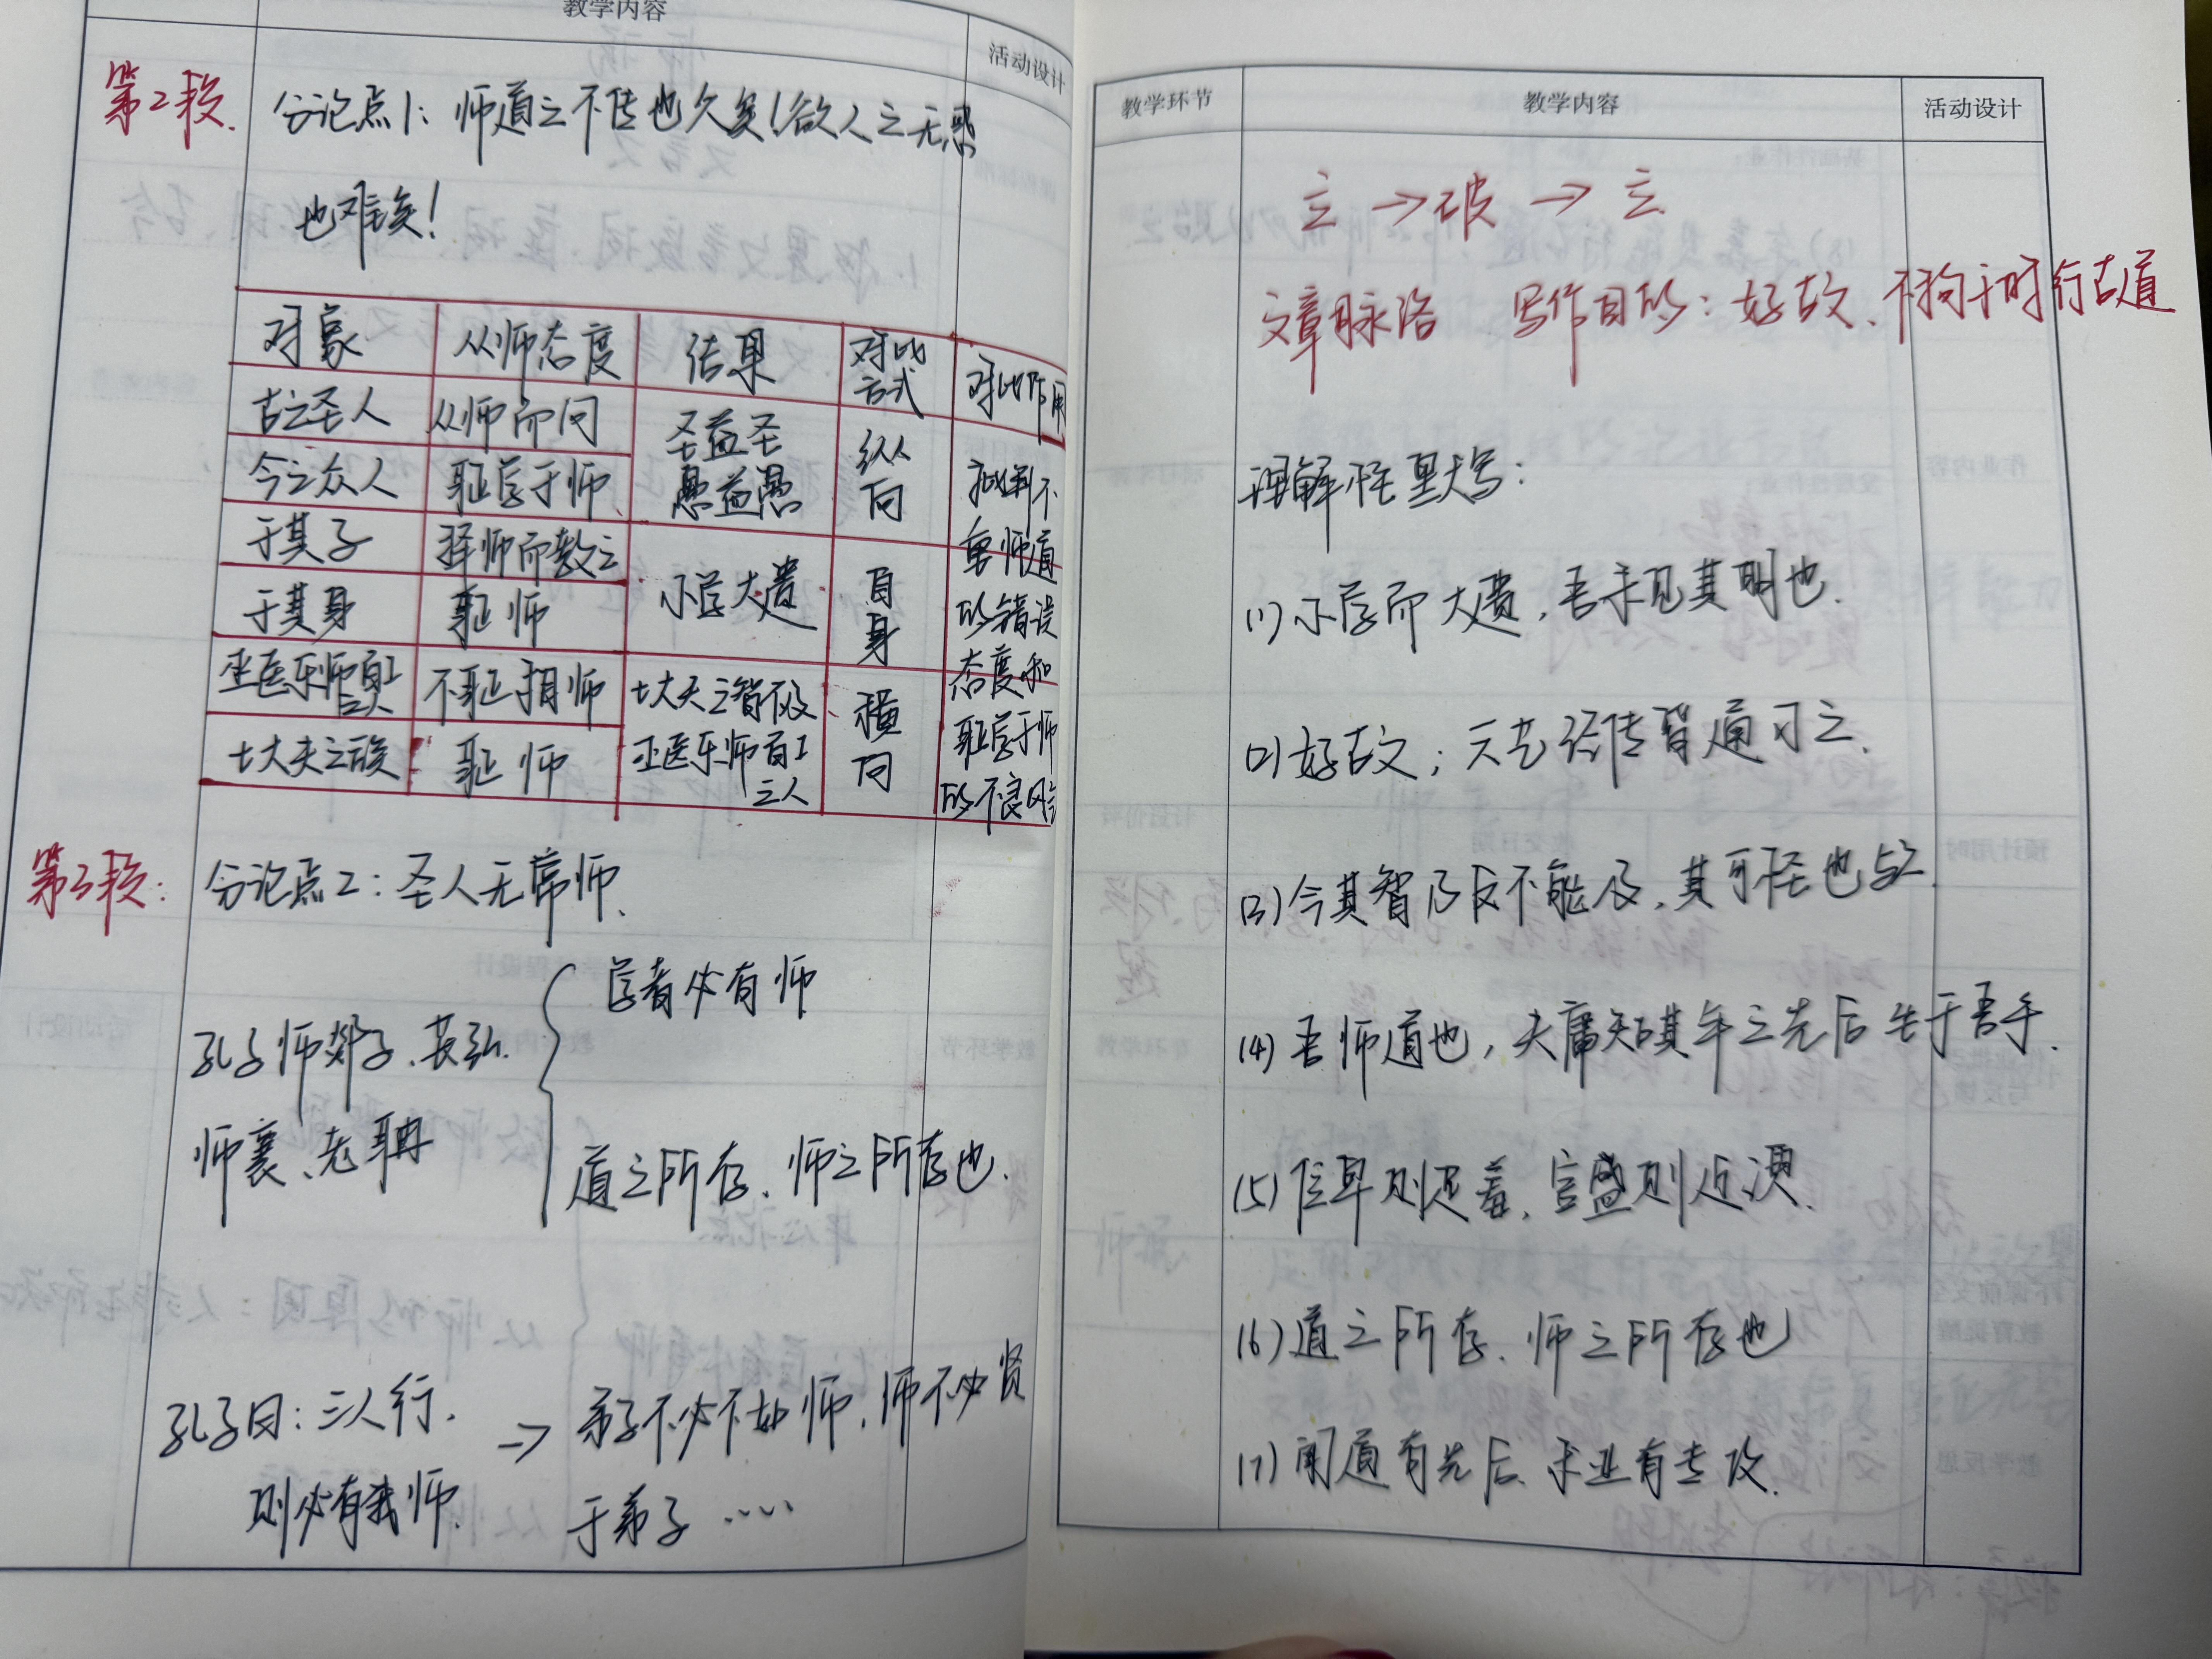 教学内容
活动设计
第2段.
分论点1: 师道之不传也久矣!欲人之无惑
也难矣!
对象 从师态度 结果 对比方式 对比作用
古之圣人 从师而问 圣益圣 纵向
今之众人 耻学于师 愚益愚
于其子 择师而教之 小学大遗 自身
于其身 耻师
巫医乐师百工之人 不耻相师 士大夫之智不及 横向
士大夫之族 耻师 巫医乐师百工之人
批判不
重师道
的错误
态度和
耻学于师
的不良风气
第3段:
分论点2: 圣人无常师.
学者必有师
孔子师郯子、苌弘.
师襄、老聃
道之所存、师之所存也.
孔子曰: 三人行.
则必有我师.
→ 弟子不必不如师, 师不必贤
于弟子 ……
教学环节 教学内容 活动设计
立 → 破 → 立
文章脉络 写作目的: 好古文、不拘于时 行古道
理解性默写:
(1) 小学而大遗, 吾未见其明也.
(2) 好古文; 六艺经传皆通习之.
(3) 今其智乃反不能及, 其可怪也欤.
(4) 吾师道也, 夫庸知其年之先后生于吾乎.
(5) 位卑则足羞, 官盛则近谀.
(6) 道之所存、师之所存也
(7) 闻道有先后、术业有专攻.